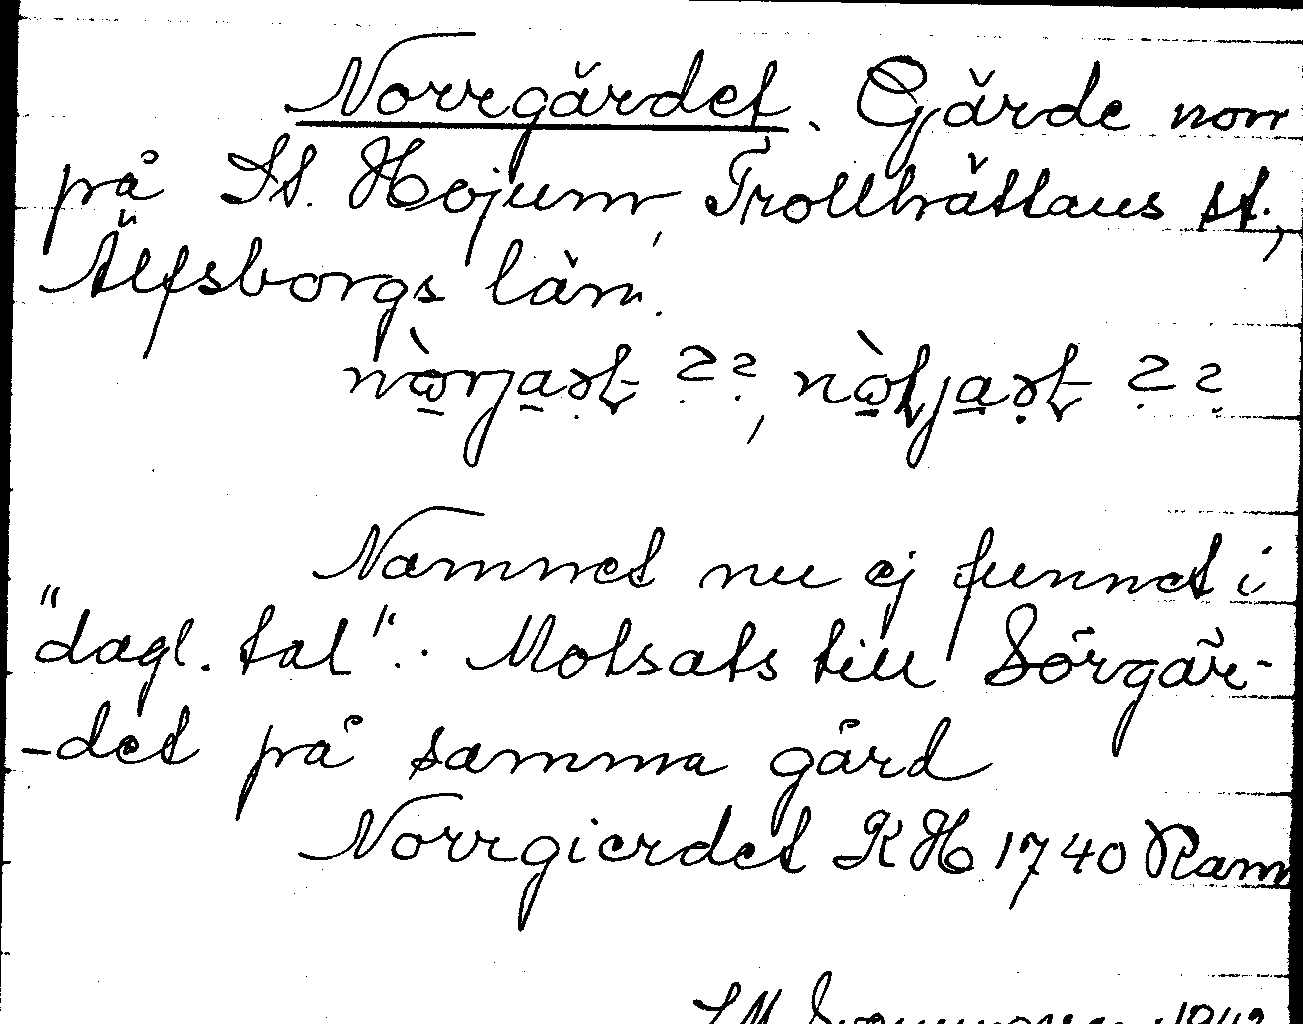 Norrgärdet. Gärde norr
på St. Hojum, Trollhättans st.,
Älfsborgs län.
nòrjaṣt ??, nòłjaṣt ??
Namnet nu ej funnet i
"dagl. tal". Motsats till Sörgär-
-det på samma gård
Norrgierdet KH 1740 Ram